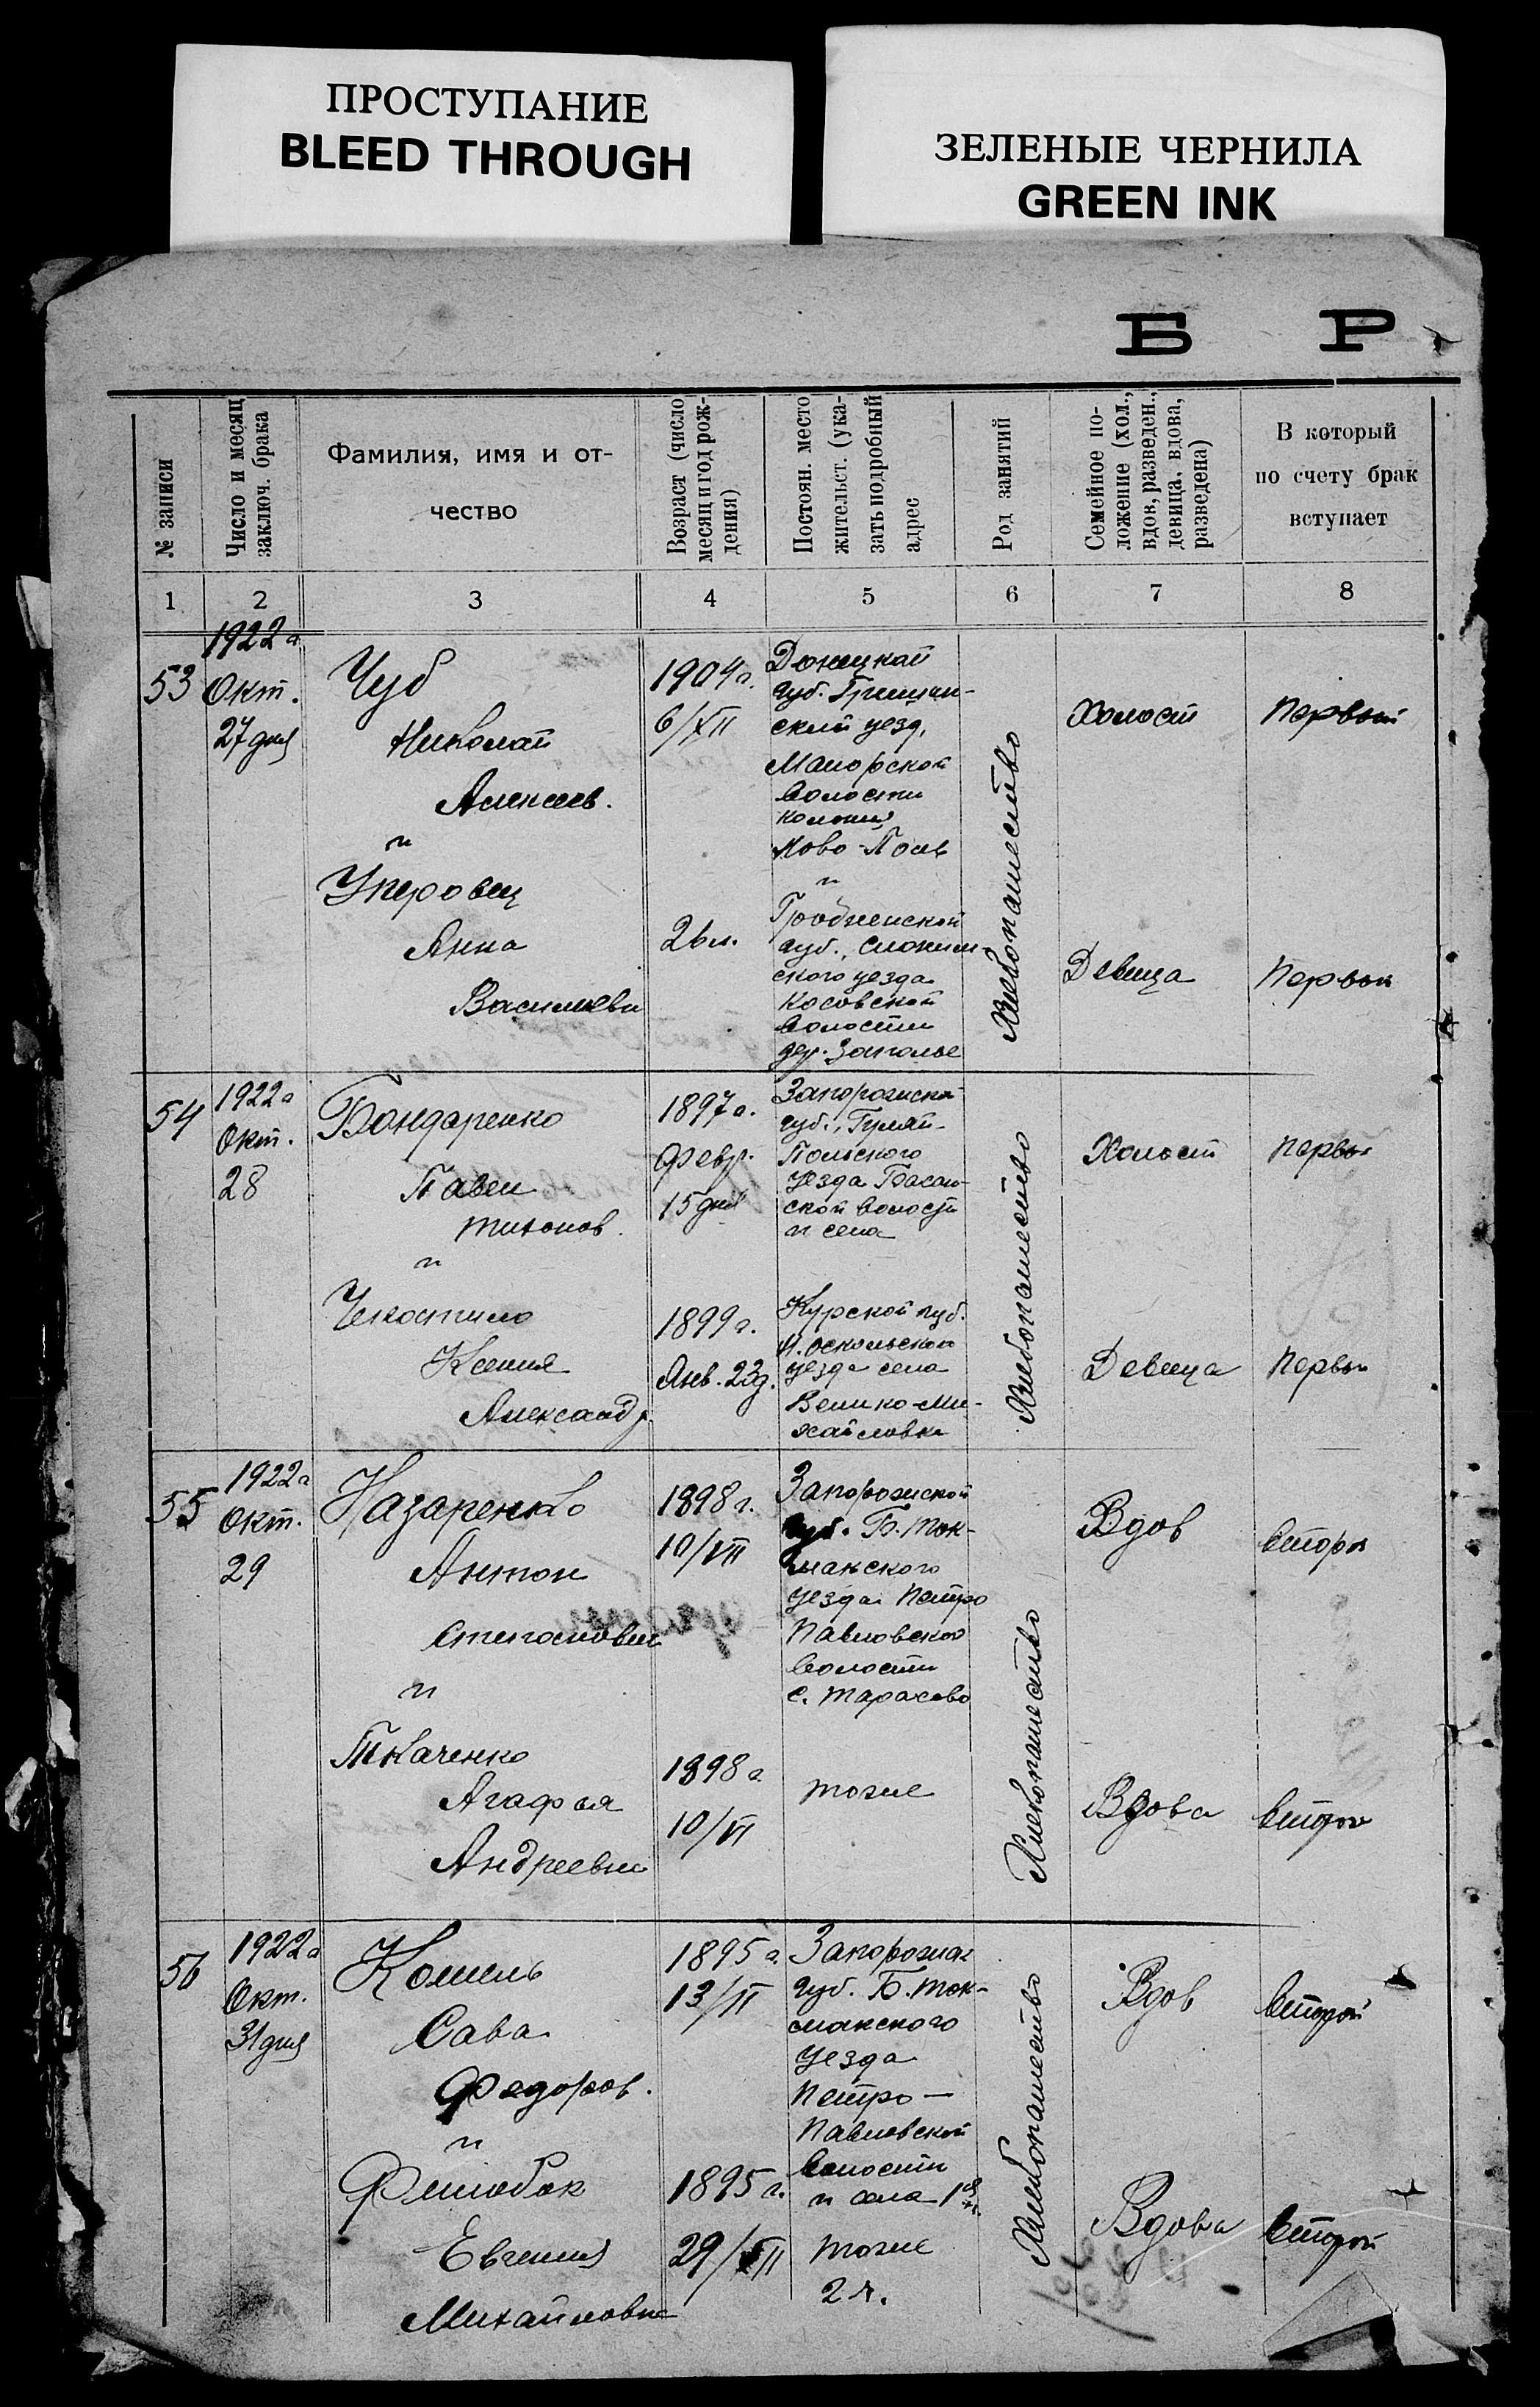 ПРОСТУПАНИЕ
BLEED THROUGH
ЗЕЛЕНЫЕ ЧЕРНИЛА
GREEN INK
Б Р
№ записи
Число и месяц
заключ. брака
Фамилия, имя и от-
чество
Возраст (число
месяц и год рож-
дения)
Постоян. место
жительст. (ука-
зать подробный
адрес
Род занятий
Семейное по-
ложение (хол.,
вдов, разведен.,
девица, вдова,
разведена)
В который
по счету брак
вступает
1 2 3 4 5 6 7 8
53
1922 г
Окт.
27 дня
Чуб
Николай
Алексеев.
и
Анна
Васильевн
1904 г.
6/XII
26 л.
Донецкой
губ. Гришин-
ский уезд,
Майорской
волости
колония
Ново-Поле
и
Гродненской
губ., Слоним-
ского уезда
Косовской
волости
дер. Заполье
Хлебопашество
Холост
Девица
Первый
Первый
54
1922 г
Окт.
28
Бондаренко
Павел
Тихонов.
и
Ксения
Александр.
1897 г.
Февр.
15 дня
1899 г.
Янв. 23 д.
Запорожской
губ., Гуляй-
Польского
уезда Басан-
ской волости
и села
Курской губ.
Н. Оскольского
уезда села
Велико-Ми-
хайловки
Хлебопашество
Холост
Девица
Первы
Первы
55
1922 г
Окт.
29
Назаренко
Антон
Степанович
и
Ткаченко
Агафья
Андреевна
1898 г.
10/VII
1898 г.
10/VI
Запорожской
губ. Б. Ток-
макского
уезда Петро
Павловской
волости
с. Тарасово
тоже
Хлебопашество
Вдов
Вдова
второй
второй
56
1922 г
Окт.
31 дня
Сава
Федоров.
и
Евгения
Михайловна
1895 г.
13/II
1895 г.
29/XII
Запорожск
губ. Б. Ток-
макского
уезда
Петро-
Павловской
волости
и села
тоже
Хлебопашество
Вдов
Вдова
второй
второй